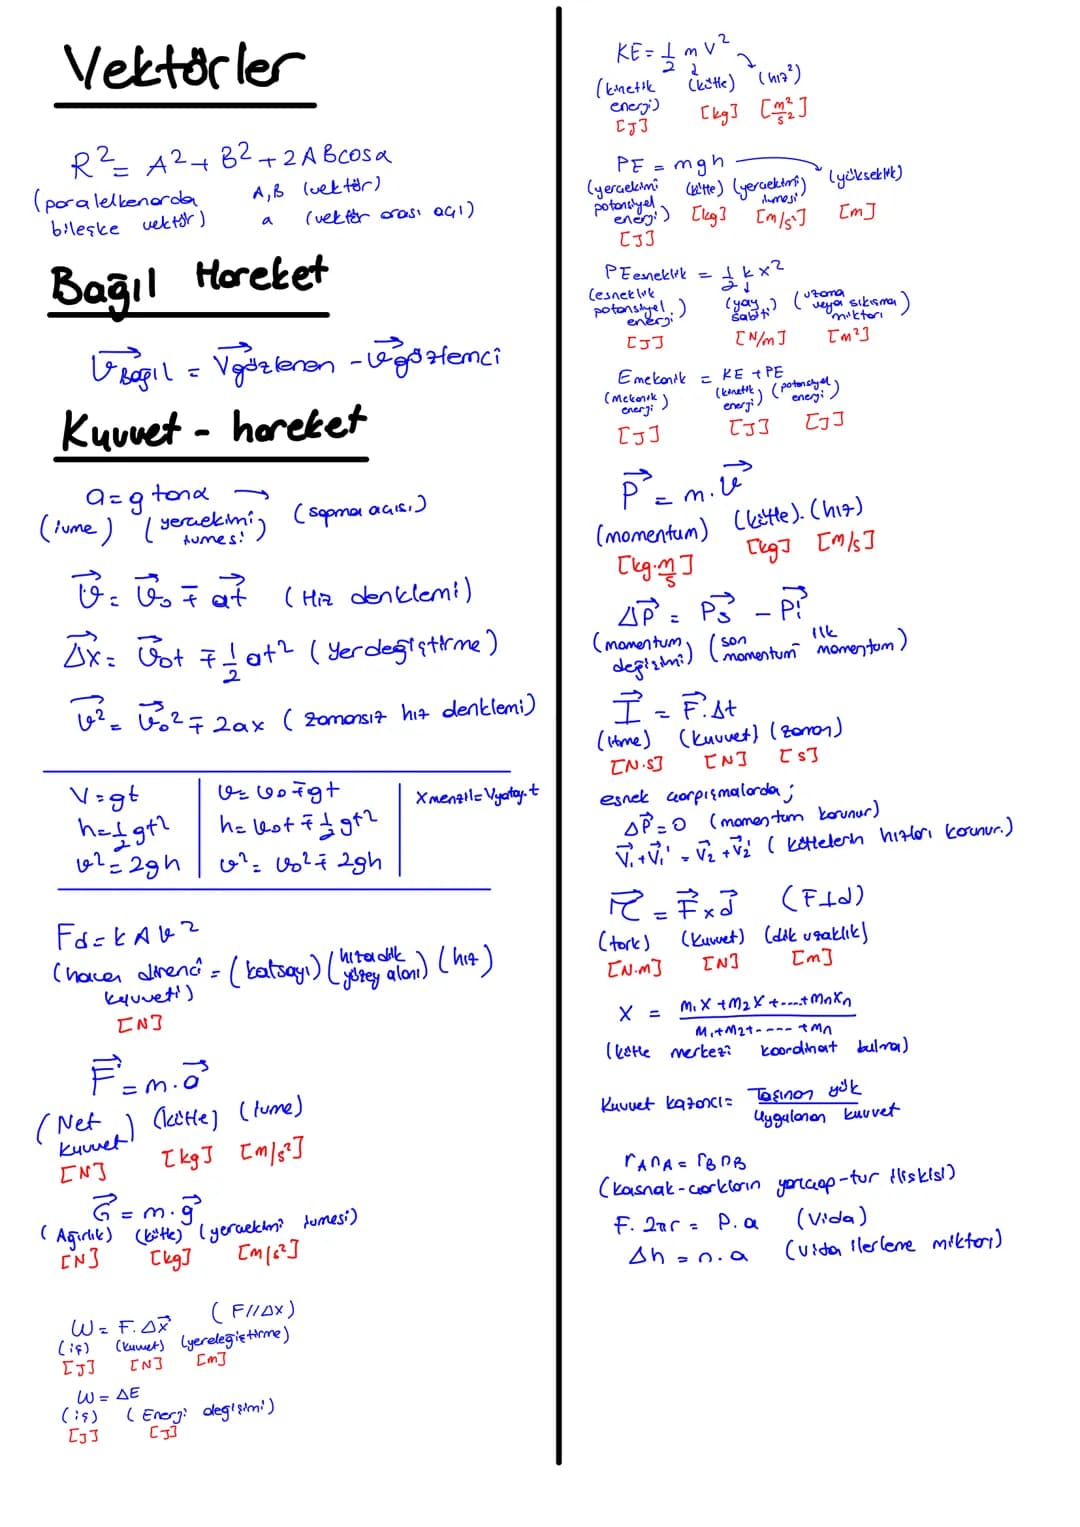 Vektörler
R² = A² + B² + 2ABcosα
(paralelkenarda A,B (vektör)
bileşke vektör) a (vektör arası açı)
Bağıl Hareket
V⃗Bağıl = V⃗gözlenen - V⃗gözlemci
Kuvvet - hareket
a = g tanα
(ivme) (yerçekimi ivmesi) (sapma açısı)
V⃗ = V⃗₀ ∓ a⃗t (Hız denklemi)
Δx⃗ = V⃗₀t ∓ 1/2 at² (Yerdeğiştirme)
V⃗² = V⃗₀² ∓ 2ax (zamansız hız denklemi)
V = gt
h = 1/2 gt²
V² = 2gh
V = V₀ ∓ gt
h = V₀t ∓ 1/2 gt²
V² = V₀² ∓ 2gh
Xmenzil = Vyatay.t
Fd = kAV²
(hava direnci kuvveti) = (katsayı) (hıza dik yüzey alanı) (hız)
[N]
F⃗ = m.a⃗
(Net kuvvet) (kütle) (ivme)
[N] [kg] [m/s²]
G⃗ = m.g⃗
(Ağırlık) (kütle) (yerçekimi ivmesi)
[N] [kg] [m/s²]
W = F.Δx⃗ (F//Δx)
(iş) (kuvvet) (yerdeğiştirme)
[J] [N] [m]
W = ΔE
(iş) (Enerji değişimi)
[J] [J]
KE = 1/2 m V²
(kinetik enerji) (kütle) (hız²)
[J] [kg] [m²/s²]
PE = mgh
(yerçekimi potansiyel enerji) (kütle) (yerçekimi ivmesi) (yükseklik)
[J] [kg] [m/s²] [m]
PEesneklik = 1/2 k x²
(esneklik potansiyel enerji) (yay sabiti) (uzama veya sıkışma miktarı)
[J] [N/m] [m²]
Emekanik = KE + PE
(Mekanik enerji) (kinetik enerji) (potansiyel enerji)
[J] [J] [J]
P⃗ = m.V⃗
(momentum) (kütle).(hız)
[kg.m/s] [kg] [m/s]
ΔP⃗ = Ps⃗ - Pi⃗
(momentum değişimi) (son momentum - ilk momentum)
I⃗ = F⃗.Δt
(itme) (kuvvet) (zaman)
[N.s] [N] [s]
esnek çarpışmalarda;
ΔP⃗ = 0 (momentum korunur)
V⃗₁ + V⃗₁' = V⃗₂ + V⃗₂' (kütlelerin hızları korunur.)
τ⃗ = F⃗ x d⃗ (F⊥d)
(tork) (kuvvet) (dik uzaklık)
[N.m] [N] [m]
X = m₁X + m₂X + ....+ mnXn / m₁+m₂+ ---- + mn
(kütle merkezi koordinat bulma)
Kuvvet kazancı = Taşınan yük / Uygulanan kuvvet
rAnA = rBnB
(kasnak-çarkların yarıçap-tur ilişkisi)
F. 2πr = P. a (Vida)
Δh = n. a (vida ilerleme miktarı)